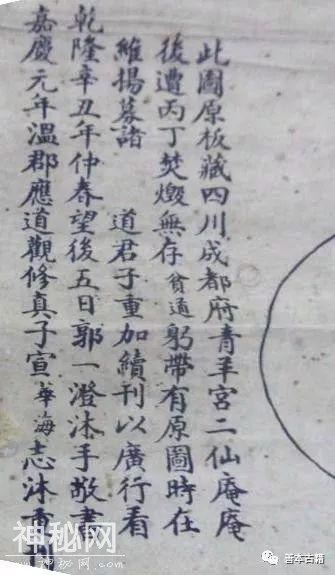 此圖原板藏四川成都府青羊宮二仙庵庵
後遭丙丁焚燬無存貧道躬帶有原圖時在
維揚募諸 道君子重加續刊以廣行看
乾隆辛丑年仲春望後五日郭一澄沐手敬書
嘉慶元年溫郡應道觀修真子宣華海志沐手
神秘网
WWW.SHENMIW.COM
善本古籍